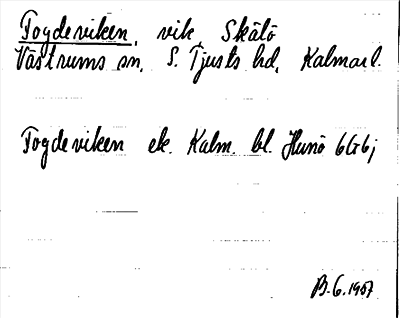 Fogdeviken, vik, Skälö
Västrums sn, S. Tjusts hd, Kalmar l.
Fogdeviken ek. Kalm. bl. Hunö 6G6j
B.G. 1957